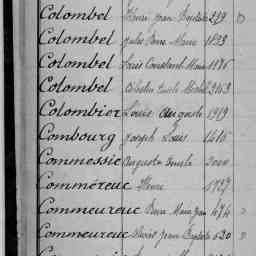 Colombel Henri Jean Baptiste 219
Colombel Jules Pierre Marie 1833
Colombel Louis Constant Marie 1876
Colombel Célestin Emile Michel 2463
Colombier Louis Auguste 1919
Combourg Joseph Louis 1416
Commessie Auguste Emile 2000
Comméreuc Henri 1927
Commeureuc Pierre Marie Jean 474
Commeureuc Jean Baptiste 520